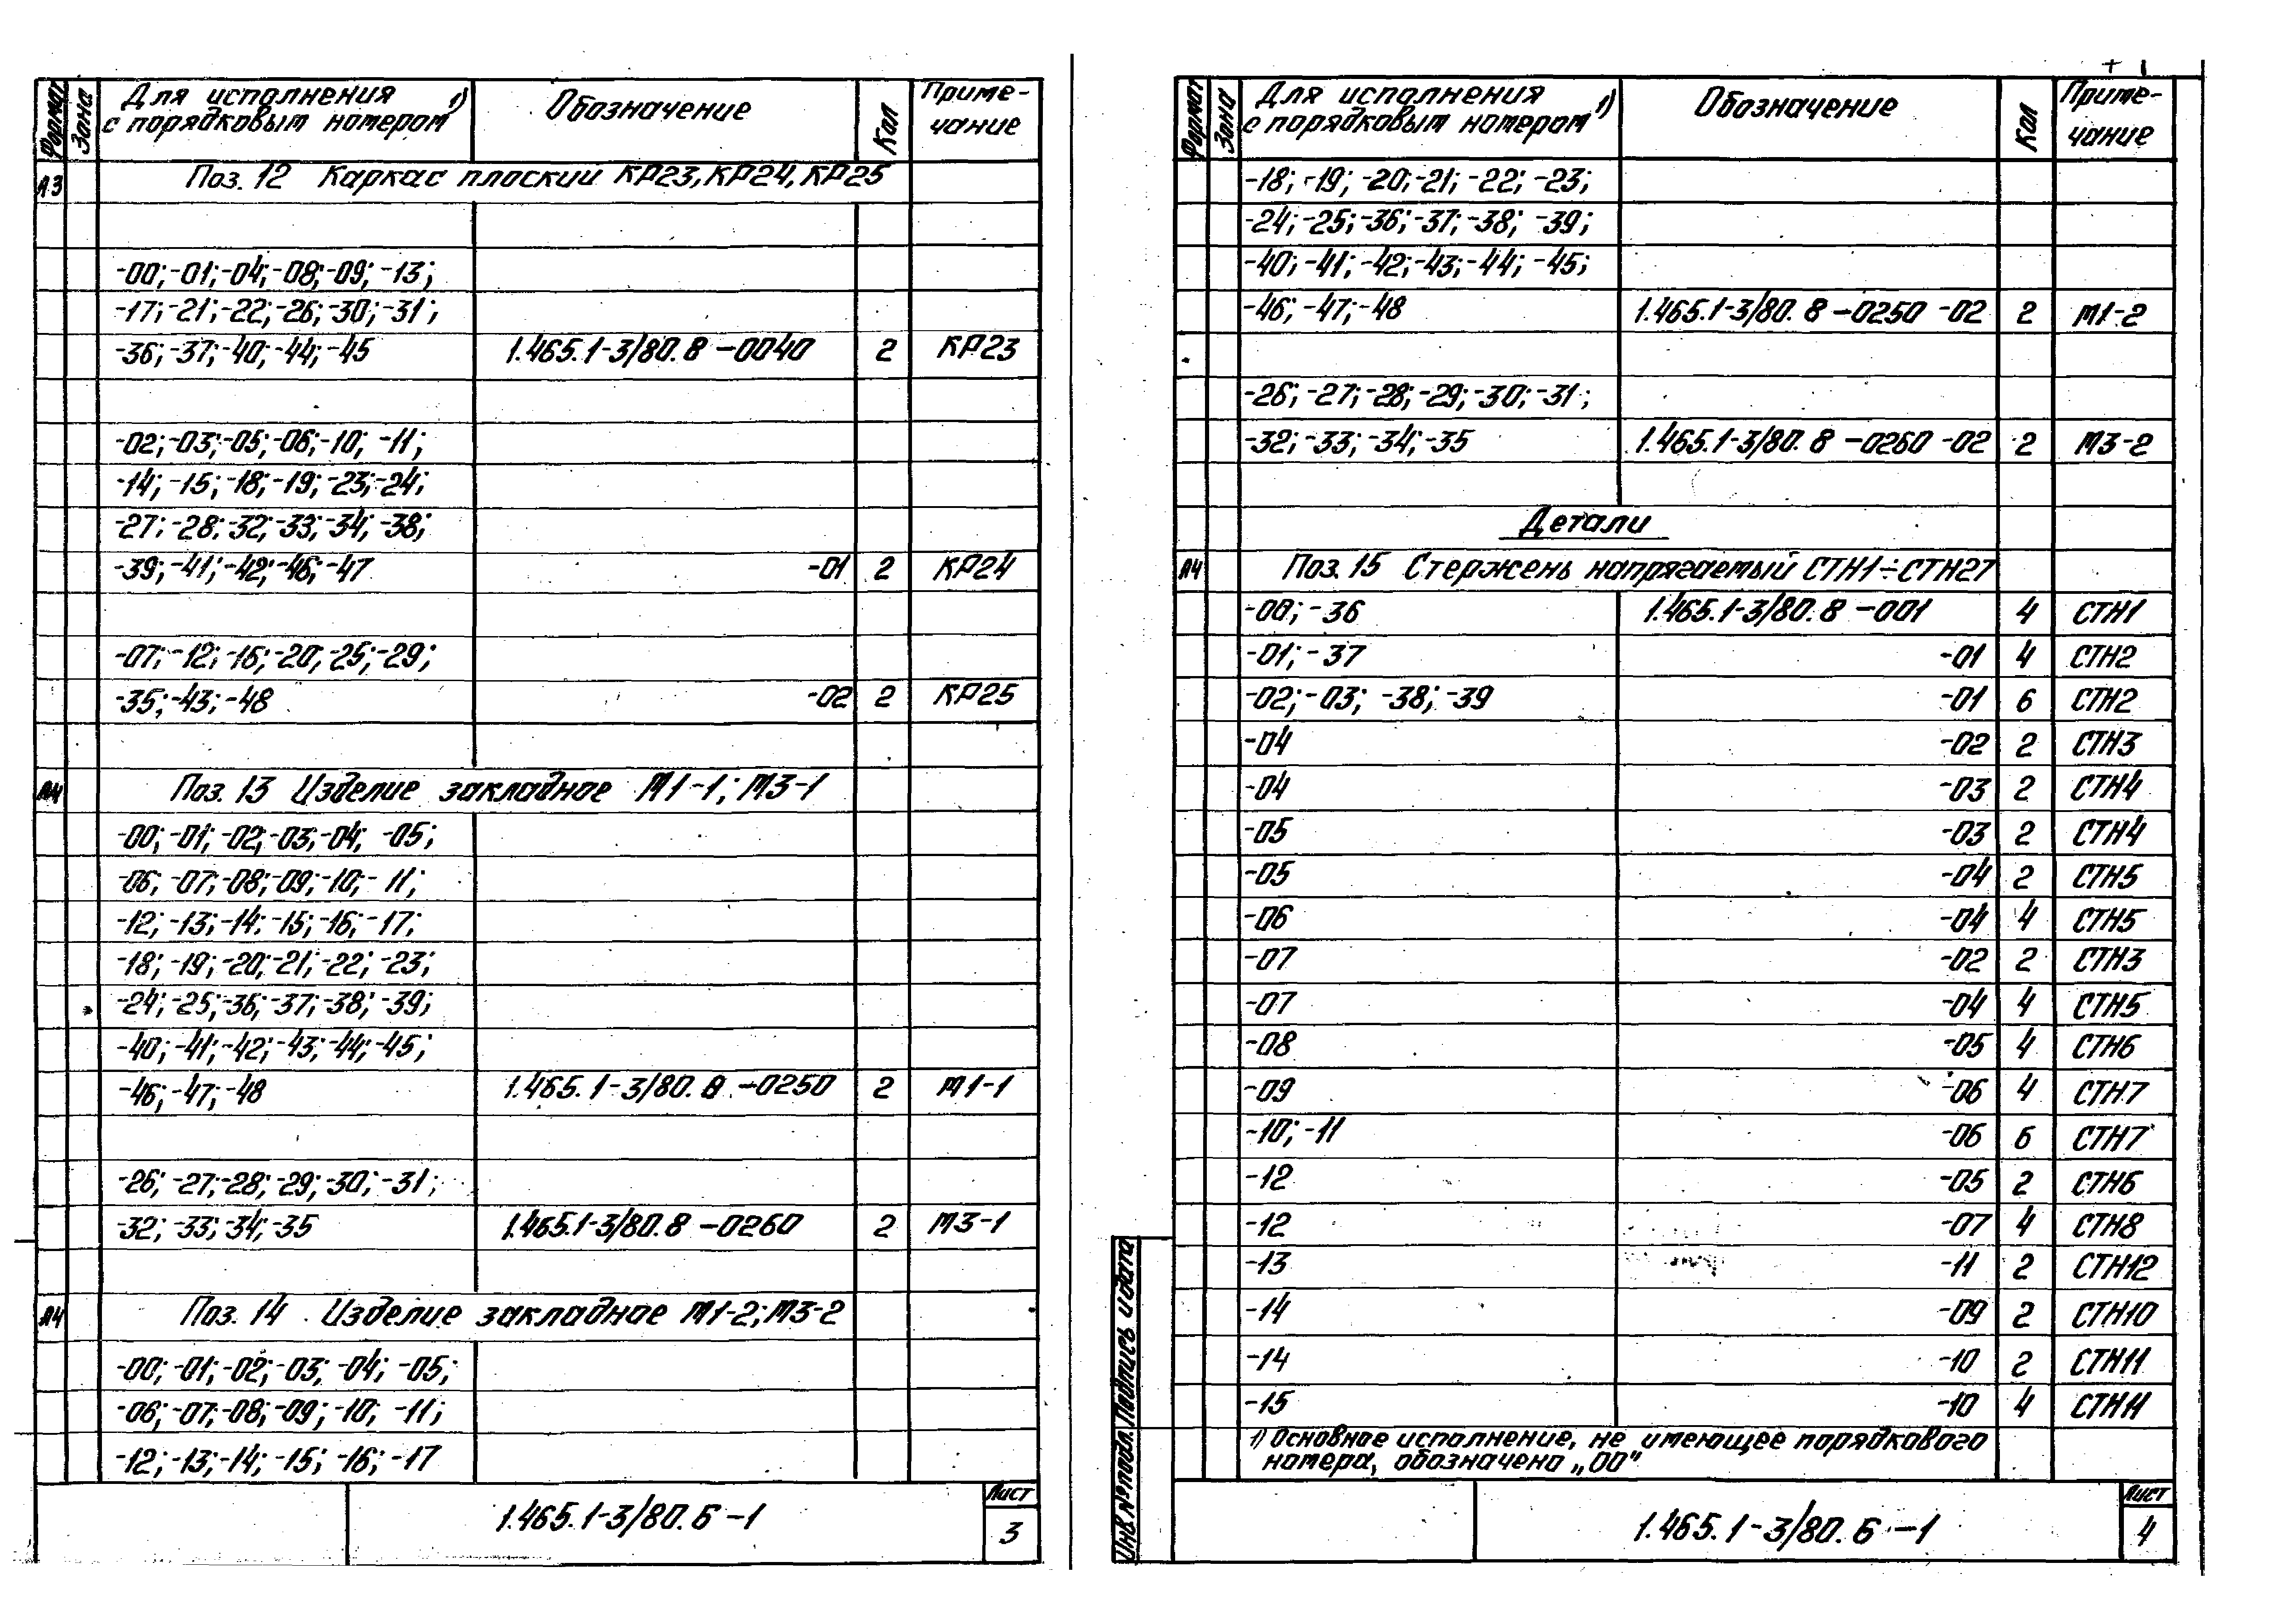 Формат Зона Для исполнения с порядковым номером 1) Обозначение Кол Приме-чание
А3 Поз. 12 Каркас плоский КР23, КР24, КР25
-00; -01; -04; -08; -09; -13;
-17; -21; -22; -26; -30; -31;
-36; -37; -40; -44; -45 1.465.1-3/80.8 -0040 2 КР23
-02; -03; -05; -06; -10; -11;
-14; -15; -18; -19; -23; -24;
-27; -28; -32; -33; -34; -38;
-39; -41; -42; -46; -47 -01 2 КР24
-07; -12; -16; -20; -25; -29;
-35; -43; -48 -02 2 КР25
А4 Поз. 13 Изделие закладное М1-1; М3-1
-00; -01; -02; -03; -04; -05;
-06; -07; -08; -09; -10; -11;
-12; -13; -14; -15; -16; -17;
-18; -19; -20; -21; -22; -23;
-24; -25; -36; -37; -38; -39;
-40; -41; -42; -43; -44; -45;
-46; -47; -48 1.465.1-3/80.8 -0250 2 М1-1
-26; -27; -28; -29; -30; -31;
-32; -33; -34; -35 1.465.1-3/80.8 -0260 2 М3-1
А4 Поз. 14 Изделие закладное М1-2; М3-2
-00; -01; -02; -03; -04; -05;
-06; -07; -08; -09; -10; -11;
-12; -13; -14; -15; -16; -17
1.465.1-3/80.6 -1
Лист
3
Формат Зона Для исполнения с порядковым номером 1) Обозначение Кол Приме-чание
-18; -19; -20; -21; -22; -23;
-24; -25; -36; -37; -38; -39;
-40; -41; -42; -43; -44; -45;
-46; -47; -48 1.465.1-3/80.8 -0250 -02 2 М1-2
-26; -27; -28; -29; -30; -31;
-32; -33; -34; -35 1.465.1-3/80.8 -0260 -02 2 М3-2
Детали
А4 Поз. 15 Стержень напрягаемый СТН1÷СТН27
-00; -36 1.465.1-3/80.8 -001 4 СТН1
-01; -37 -01 4 СТН2
-02; -03; -38; -39 -01 6 СТН2
-04 -02 2 СТН3
-04 -03 2 СТН4
-05 -03 2 СТН4
-05 -04 2 СТН5
-06 -04 4 СТН5
-07 -02 2 СТН3
-07 -04 4 СТН5
-08 -05 4 СТН6
-09 -06 4 СТН7
-10; -11 -06 6 СТН7
-12 -05 2 СТН6
-12 -07 4 СТН8
-13 -11 2 СТН12
-14 -09 2 СТН10
-14 -10 2 СТН11
-15 -10 4 СТН11
1) Основное исполнение, не имеющее порядкового
номера, обозначено „00"
Инв. № подл. Подпись и дата
1.465.1-3/80.6 -1
Лист
4